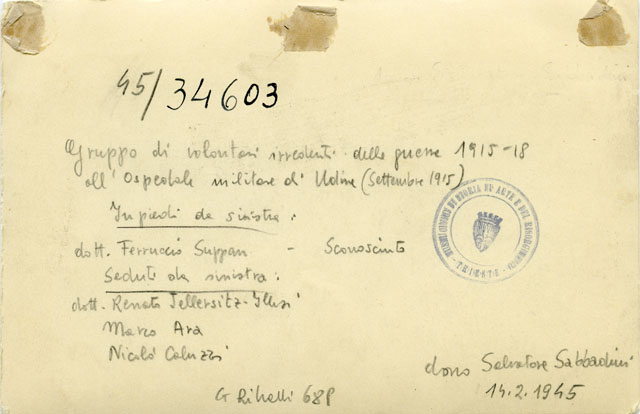 45/34603
Gruppo di volontari irredenti della guerra 1915-18
all'Ospedale militare di Udine (Settembre 1915)
In piedi da sinistra:
dott. Ferruccio Suppan - Sconosciuto
Seduti da sinistra:
dott. Renato Jellersitz-Illesi
Marco Ara
Nicolò Coluzzi
CIVICI MUSEI DI STORIA ED ARTE E DEL RISORGIMENTO
- TRIESTE -
dono Salvatore Sabbadini
14.2.1945
G 68P